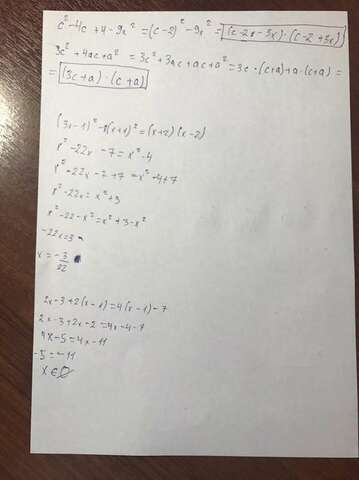 c² - 4c + 4 - 9x² = (c-2)² - 9x² = (c-2-3x)·(c-2+3x)
3c² + 4ac + a² = 3c² + 3ac + ac + a² = 3c·(c+a) + a·(c+a) =
= (3c+a)·(c+a)
(3x-1)² - 8(x+1)² = (x+2)(x-2)
x² - 22x - 7 = x² - 4
x² - 22x - 7 + 7 = x² - 4 + 7
x² - 22x = x² + 3
x² - 22 - x² = x² + 3 - x²
-22x = 3
x = -3/22
2x - 3 + 2(x-1) = 4(x-1) - 7
2x - 3 + 2x - 2 = 4x - 4 - 7
4x - 5 = 4x - 11
-5 = -11
x ∈ ∅